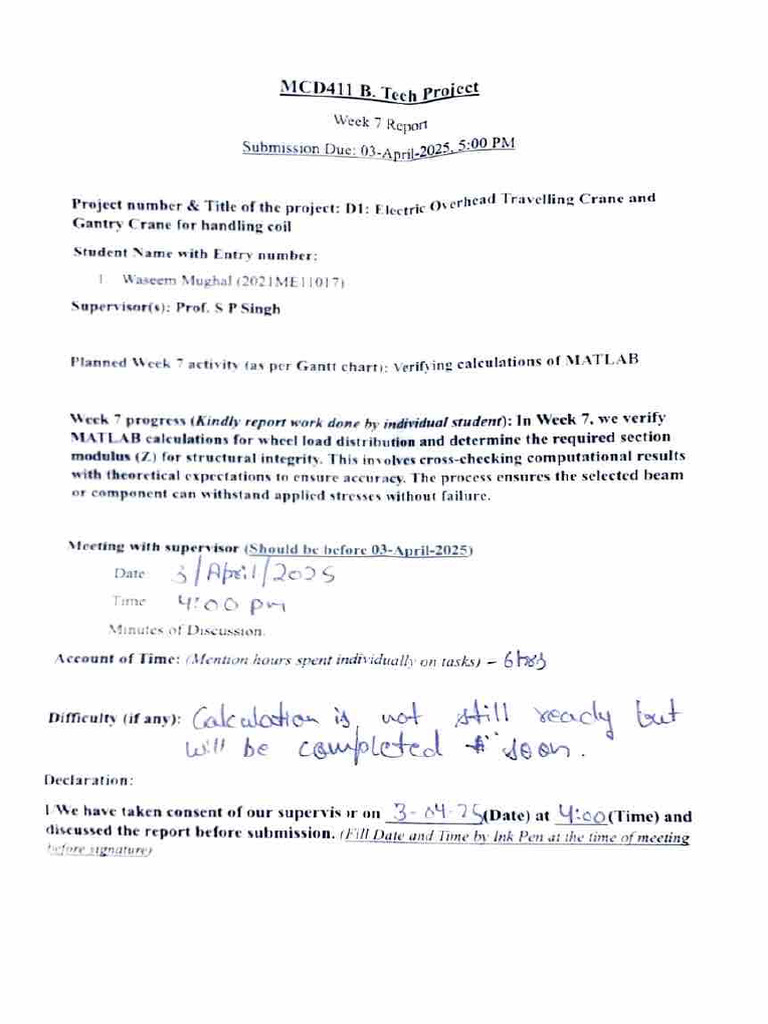 MCD411 B. Tech Project
Week 7 Report
Submission Due: 03-April-2025, 5:00 PM
Project number & Title of the project: D1: Electric Overhead Travelling Crane and
Gantry Crane for handling coil
Student Name with Entry number:
1. Waseem Mughal (2021ME11017)
Supervisor(s): Prof. S P Singh
Planned Week 7 activity (as per Gantt chart): Verifying calculations of MATLAB
Week 7 progress (Kindly report work done by individual student): In Week 7, we verify
MATLAB calculations for wheel load distribution and determine the required section
modulus (Z) for structural integrity. This involves cross-checking computational results
with theoretical expectations to ensure accuracy. The process ensures the selected beam
or component can withstand applied stresses without failure.
Meeting with supervisor (Should be before 03-April-2025)
Date: 3/April/2025
Time 4:00 pm
Minutes of Discussion.
Account of Time: (Mention hours spent individually on tasks) – 6hrs
Difficulty (if any): Calculation is not still ready but
will be completed soon.
Declaration:
I/We have taken consent of our supervisor on 3-04-25(Date) at 4:00(Time) and
discussed the report before submission. (Fill Date and Time by Ink Pen at the time of meeting
before signature)